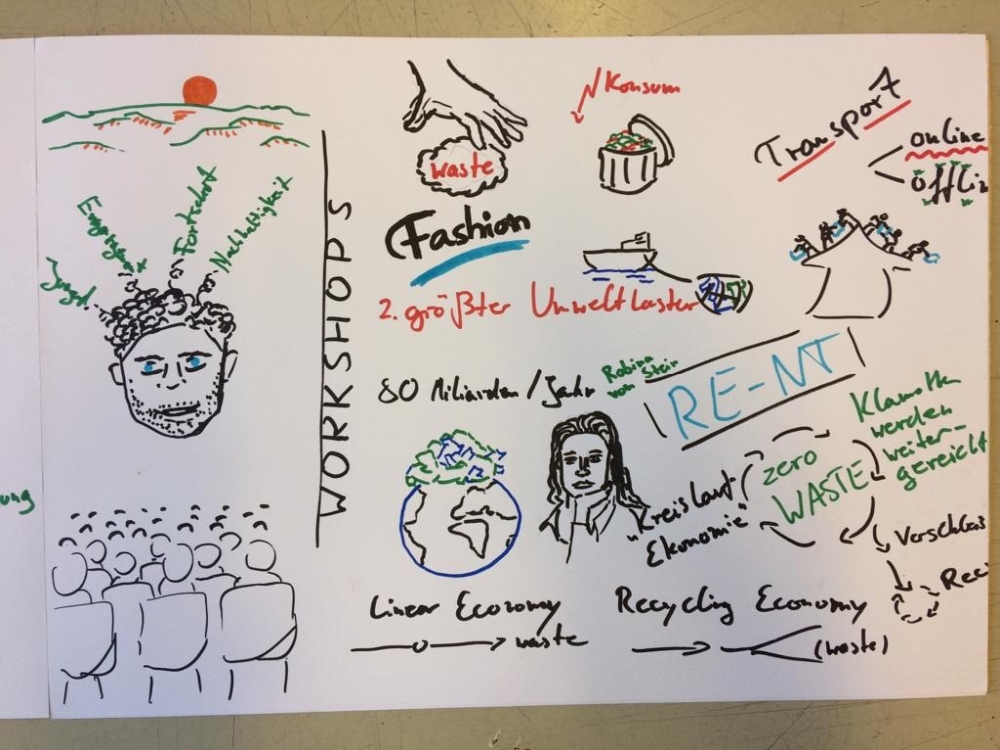 Fortschritt
Nachhaltigkeit
WORKSHOPS
waste
Konsum
Transport
online
Fashion
2. größter Umweltlaster
80 Miliarden / Jahr
Robina
von Stein
RE-NT
Klamotten
werden
weiter-
gereicht
zero
WASTE
"Kreislauf
Ekonomie"
Verschleis
Rec
ung
Linear Economy
waste
Recycling Economy
(waste)